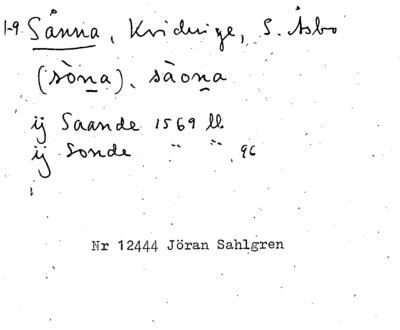 1-9. Sånna, Kvidinge, S. Åsbo
(sòna), sàona
ij Saande 1569 ll
ij Sonde " " 96
Nr 12444 Jöran Sahlgren